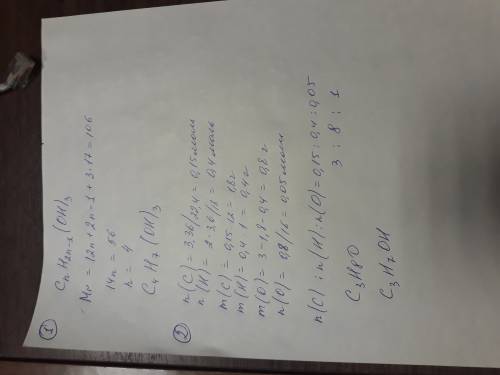 ① CnH2n-1(OH)3
Mr = 12n + 2n-1 + 3·17 = 106
14n = 56
n = 4
C4H7(OH)3
② n(C) = 3,36/22,4 = 0,15моль
n(H) = 2·3,6/18 = 0,4моль
m(C) = 0,15·12 = 1,8г
m(H) = 0,4·1 = 0,4г
m(O) = 3-1,8-0,4 = 0,8г
n(O) = 0,8/16 = 0,05моль
n(C) : n(H) : n(O) = 0,15 : 0,4 : 0,05
3 : 8 : 1
C3H8O
C3H7OH